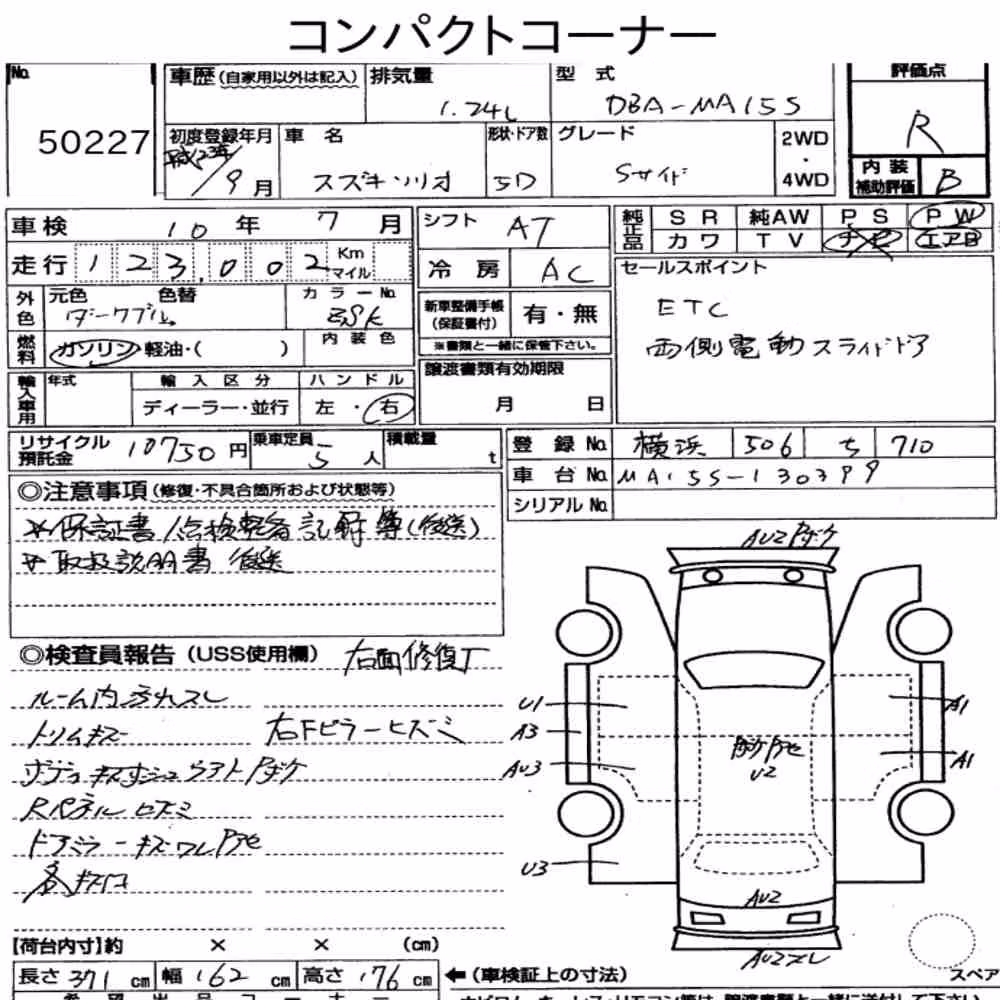 コンパクトコーナー
No. 50227
車歴(自家用以外は記入) 排気量 1.24L 型式 DBA-MA15S 評価点 R
初度登録年月 平成23年/9月 車名 スズキソリオ 形状・ドア数 5D グレード Sサイド 2WD・4WD 内装補助評価 B
車検 10年 7月 シフト AT 純正品 SR 純AW PS PW
カワ TV ナビ エアB
走行 123,002 Km マイル 冷房 AC セールスポイント
外色 元色 ダークブル 色替 カラーNo. ZJK 新車整備手帳(保証書付) 有・無 ETC
燃料 ガソリン・軽油・( ) 内装色 ※書類と一緒に保管下さい。 両側電動スライドドア
輸入車用 年式 輸入区分 ハンドル 譲渡書類有効期限
ディーラー・並行 左・右 月 日
リサイクル預託金 10750円 乗車定員 5人 積載量 t 登録No. 横浜 506 ち 710
車台No. MA15S-130399
シリアルNo.
◎注意事項(修復・不具合箇所および状態等)
*保証書/点検整備記録簿(後送)
*取扱説明書後送
◎検査員報告(USS使用欄) 右面修復
ルーム内汚れスレ
トリムキズ 右Fピラーヒズミ
ボデーキズ ウスアト
Rパネルヒズミ
ドアミラーキズワレ
各キズ凹
AU2
U1 A1
A3
AU3 A1
U2
U3
AU2
AU2スレ
【荷台内寸】約 × × (cm)
長さ 371 cm 幅 162 cm 高さ 176 cm ←(車検証上の寸法) スペア